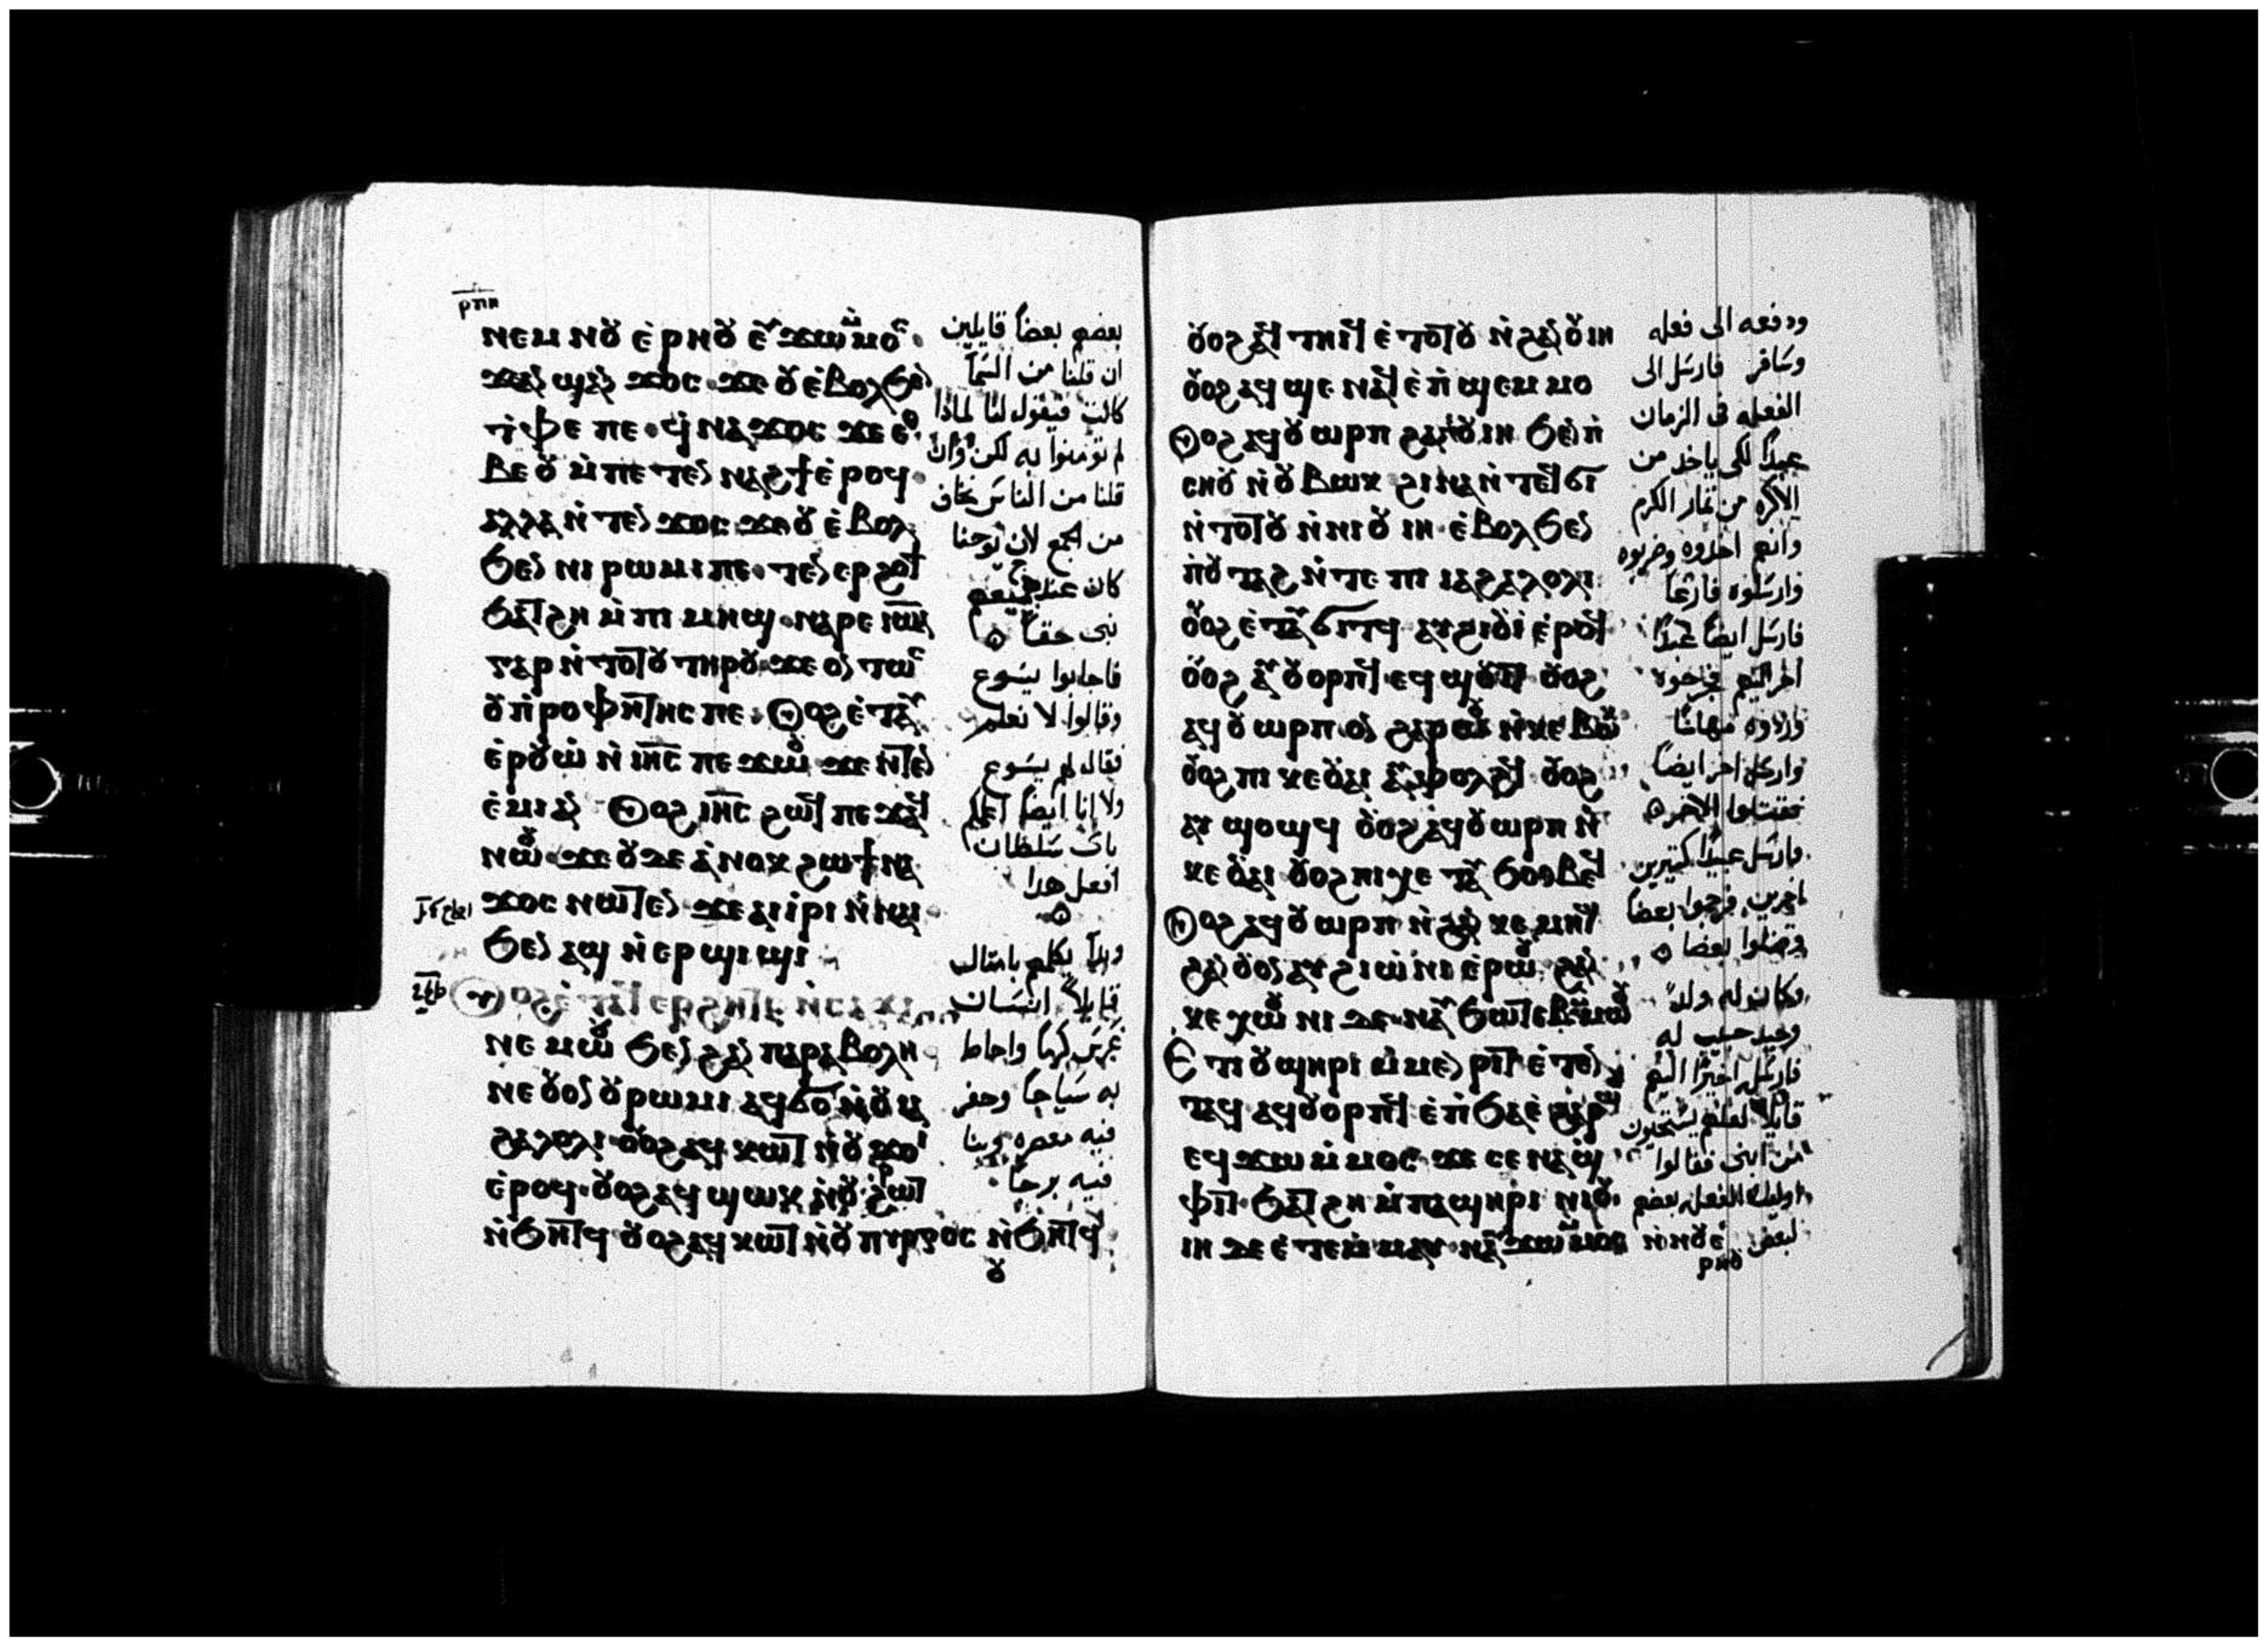 ⲣⲡⲏ
ⲛⲉⲙ ⲛⲟⲩ ⲉⲣⲏⲟⲩ ⲉⲩϫⲱⲙⲙⲟⲥ
ϫⲁⲛϣⲁⲛ ϫⲟⲥ ϫⲉ ⲟⲩ ⲉⲃⲟⲗϧⲉⲛ
ⲧⲫⲉ ⲡⲉ ϥⲛⲁϫⲟⲥ ϫⲉ ⲉⲑ
ⲃⲉ ⲟⲩ ⲙⲡⲉⲧⲉⲛⲛⲁϩϯ ⲉⲣⲟϥ
ⲁⲗⲗⲁ ⲛⲧⲉⲛ ϫⲟⲥ ϫⲉ ⲟⲩ ⲉⲃⲟⲗ
ϧⲉⲛ ⲛⲓⲣⲱⲙⲓ ⲡⲉ ⲧⲉⲛⲉⲣϩⲟϯ
ϧⲁⲧϩⲏ ⲙⲡⲓⲙⲏϣ ⲛⲁⲣⲉ ⲓⲱⲁ
ⲅⲁⲣ ⲛⲧⲟⲧⲟⲩ ⲧⲏⲣⲟⲩ ϫⲉ ⲟⲛⲧⲱⲥ
ⲟⲩⲡⲣⲟⲫⲏⲧⲏⲥ ⲡⲉ ⲟⲩⲟϩ ⲉⲧⲁⲩ
ⲉⲣⲟⲩⲱ ⲛⲓⲏⲥ ⲡⲉϫⲱⲟⲩ ϫⲉ ⲛⲧⲉⲛ
ⲉⲙⲓ ⲁⲛ ⲟⲩⲟϩ ⲓⲏⲥ ϩⲱϥ ⲡⲉϫⲁϥ
ⲛⲱⲟⲩ ϫⲉ ⲟⲩⲇⲉ ⲁⲛⲟⲕ ϩⲱ ϯⲛⲁ
ϫⲟⲥ ⲛⲱⲧⲉⲛ ϫⲉ ⲁⲓⲓⲣⲓ ⲛⲛⲁⲓ
ϧⲉⲛ ⲁϣ ⲛⲉⲣϣⲓϣⲓ
ⲟⲩⲟϩ ⲉⲧⲁϥⲉⲣϩⲏⲧⲥ ⲛⲥⲁϫⲓ
ⲛⲉⲙⲱⲟⲩ ϧⲉⲛ ϩⲁⲛⲡⲁⲣⲁⲃⲟⲗⲏ
ⲛⲉ ⲟⲩⲟⲛ ⲟⲩⲣⲱⲙⲓ ⲁϥϭⲟ ⲛⲟⲩⲓⲁ
ϩⲁⲗⲟⲗⲓ ⲟⲩⲟϩ ⲁϥⲕⲱϯ ⲛⲟⲩϫⲟⲓ
ⲉⲣⲟϥ ⲟⲩⲟϩ ⲁϥϣⲱⲕ ⲛⲟⲩϩⲣⲱⲧ
ⲛϧⲏⲧϥ ⲟⲩⲟϩ ⲁϥⲕⲱⲧ ⲛⲟⲩⲡⲩⲣⲅⲟⲥ ⲛϧⲏⲧϥ
ⲟⲩ
بعضهم بعضاً قايلين
ان قلنا من السما
كانت فيقول لنا لماذا
لم تومنوا به لكن وان
قلنا من الناس نخاف
من الجمع لان يوحنا
كان عند جميعهم
نبى حقاً
فاجابوا يسوع
وقالوا لا نعلم
فقال لهم يسوع
ولا انا ايضاً اعلمكم
باى سلطان
افعل هدا
وبدأ يكلمهم بامتال
قايلاً انسان
غرس كرما واحاط
به سياجاً وحفر
فيه معصره وبنا
فيه برجاً
ⲟⲩⲟϩ ⲁϥⲧⲏⲓϥ ⲉⲧⲟⲧⲟⲩ ⲛϩⲁⲛⲟⲩⲓⲏ
ⲟⲩⲟϩ ⲁϥϣⲉ ⲛⲁϥ ⲉⲡϣⲉⲙⲙⲟ
ⲟⲩⲟϩ ⲁϥⲟⲩⲱⲣⲡ ϩⲁⲛⲟⲩⲓⲏ ϧⲉⲛ ⲡ
ⲥⲏⲟⲩ ⲛⲟⲩⲃⲱⲕ ϩⲓⲛⲁ ⲛⲧⲉϥϭⲓ
ⲛⲧⲟⲧⲟⲩ ⲛⲛⲓⲟⲩⲓⲏ ⲉⲃⲟⲗϧⲉⲛ
ⲡⲟⲩⲧⲁϩ ⲛⲧⲉ ⲡⲓⲓⲁϩⲁⲗⲟⲗⲓ
ⲟⲩⲟϩ ⲉⲧⲁⲩϭⲓⲧϥ ⲁⲩϩⲓⲟⲩⲓ ⲉⲣⲟϥ
ⲟⲩⲟϩ ⲁⲩⲟⲩⲟⲣⲡϥ ⲉϥϣⲟⲩⲓⲧ ⲟⲩⲟϩ
ⲁϥⲟⲩⲱⲣⲡ ⲟⲛ ϩⲁⲣⲱⲟⲩ ⲛⲕⲉⲃⲱⲕ
ⲟⲩⲟϩ ⲡⲓⲕⲉⲟⲩⲁⲓ ⲁⲩⲫⲟⲗϩϥ ⲟⲩⲟϩ
ⲁⲩϣⲟϣϥ ⲟⲩⲟϩ ⲁϥⲟⲩⲱⲣⲡ ⲛ
ⲕⲉⲟⲩⲁⲓ ⲟⲩⲟϩ ⲡⲓⲭⲉⲧ ⲁⲩϧⲟⲑⲃⲉϥ
ⲟⲩⲟϩ ⲁϥⲟⲩⲱⲣⲡ ⲛϩⲁⲛⲕⲉⲙⲏϣ
ϩⲁⲛⲟⲩⲟⲛ ⲁⲩϩⲓⲱⲛⲓ ⲉⲣⲱⲟⲩ ϩⲁⲛ
ⲕⲉⲭⲱⲟⲩⲛⲓ ⲇⲉ ⲛⲁⲩϧⲱⲧⲉⲃ ⲙⲙⲱⲟⲩ
ⲉⲧⲓ ⲟⲩϣⲏⲣⲓ ⲙⲙⲉⲛⲣⲓⲧ ⲉⲛⲧⲉⲛ
ⲧⲁϥ ⲁϥⲟⲩⲟⲣⲡϥ ⲉⲡϧⲁⲉ ϩⲁⲣⲱⲟⲩ
ⲉϥϫⲱⲙⲙⲟⲥ ϫⲉ ⲥⲉⲛⲁϣ
ⲫⲓⲧ ϧⲁⲧϩⲏ ⲙⲡⲁϣⲏⲣⲓ ⲛⲓⲟⲩ
ⲓⲏ ⲇⲉ ⲉⲧⲉⲙⲙⲁⲩ ⲛⲁⲩϫⲱⲙⲙⲟⲥ ⲛⲛⲟⲩⲉ
ⲣⲏⲟⲩ
ودفعه الى فعله
وسافر فارسل الى
الفعله فى الزمان
عبداً لكى ياخد من
الاكره من تمار الكرم
وانهم اخدوه وضربوه
وارسلوه فارغاً
فارسل ايضاً عبداً
اخر اليهم فجرحوه
وردوه مهانا
وارسل اخر ايضاً
فقتلوا الاخر
فارسل عبيداً كتيرين
اخرين فرجموا بعضاً
وقتلوا بعضا
وكان له ولد
وحيد حبيب له
فارسله اخيرا اليهم
قايلا لعلهم يستحيون
من ابنى فقالوا
اوليك الفعله بعضهم
لبعض